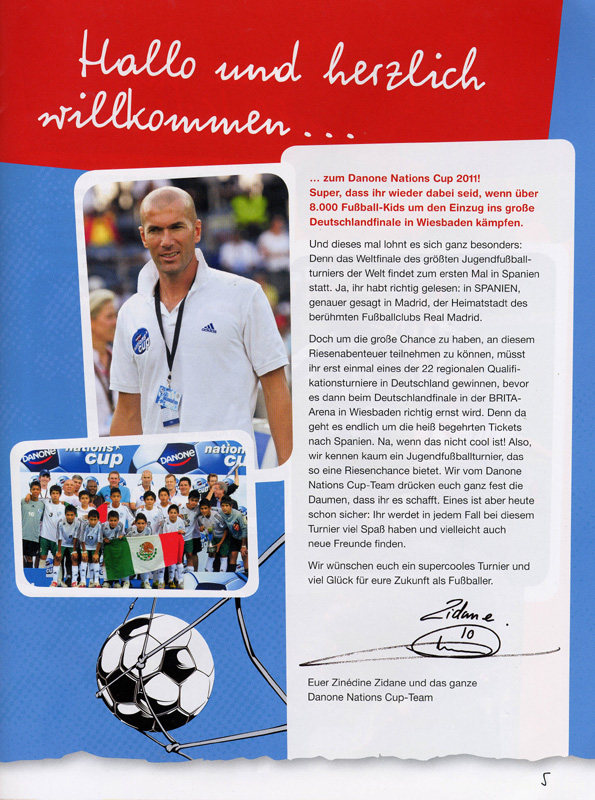 Hallo und herzlich
willkommen...
... zum Danone Nations Cup 2011!
Super, dass ihr wieder dabei seid, wenn über
8.000 Fußball-Kids um den Einzug ins große
Deutschlandfinale in Wiesbaden kämpfen.
Und dieses mal lohnt es sich ganz besonders:
Denn das Weltfinale des größten Jugendfußball-
turniers der Welt findet zum ersten Mal in Spanien
statt. Ja, ihr habt richtig gelesen: in SPANIEN,
genauer gesagt in Madrid, der Heimatstadt des
berühmten Fußballclubs Real Madrid.
Doch um die große Chance zu haben, an diesem
Riesenabenteuer teilnehmen zu können, müsst
ihr erst einmal eines der 22 regionalen Qualifi-
kationsturniere in Deutschland gewinnen, bevor
es dann beim Deutschlandfinale in der BRITA-
Arena in Wiesbaden richtig ernst wird. Denn da
geht es endlich um die heiß begehrten Tickets
nach Spanien. Na, wenn das nicht cool ist! Also,
wir kennen kaum ein Jugendfußballturnier, das
so eine Riesenchance bietet. Wir vom Danone
Nations Cup-Team drücken euch ganz fest die
Daumen, dass ihr es schafft. Eines ist aber heute
schon sicher: Ihr werdet in jedem Fall bei diesem
Turnier viel Spaß haben und vielleicht auch
neue Freunde finden.
Wir wünschen euch ein supercooles Turnier und
viel Glück für eure Zukunft als Fußballer.
Zidane.
10
Euer Zinédine Zidane und das ganze
Danone Nations Cup-Team
adidas
cup
DANONE
nations
cup
DANONE
nations
cup
5